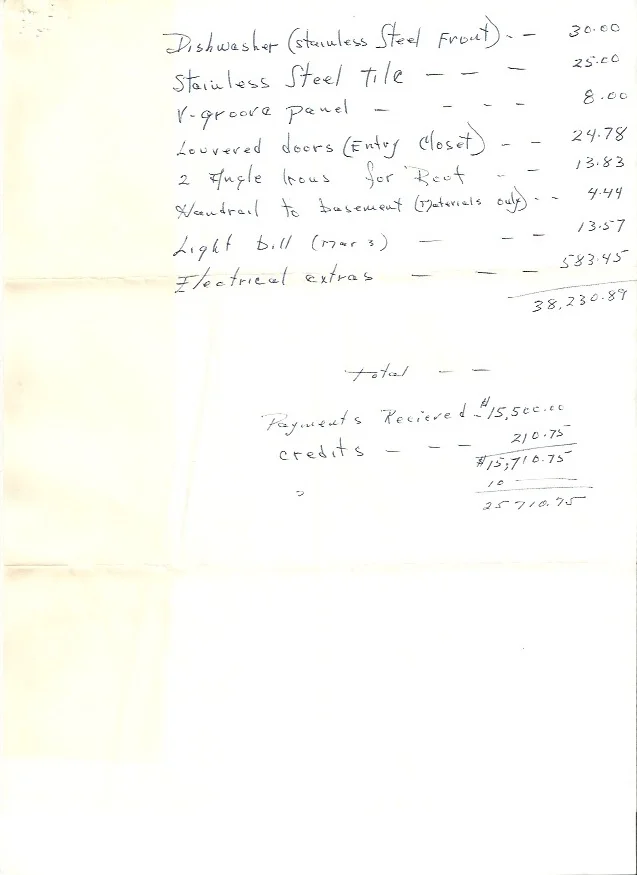 Dishwasher (stainless Steel Front) - - 30.00
Stainless Steel Tile - - - 25.00
V-groove panel - - - - 8.00
Louvered doors (Entry Closet) - - 24.78
2 Angle Irons for Roof - - 13.83
Handrail to basement (Materials only) - - 4.44
Light bill (Mar 3) - - - 13.57
Electrical extras - - - 583.45
38,230.89
Total - -
Payments Recieved - $15,500.00
credits - - - 210.75
$15,710.75
10 ———
25710.75